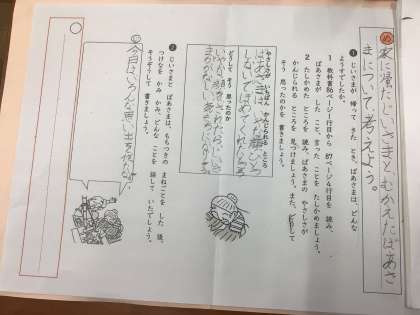 め
家に帰ったじいさまとむかえたばあさ
まについて、考えよう。
① じいさまが 帰って きた とき、ばあさまは、どんな
ようすでしたか。
1 教科書86ページ1行目から 87ページ4行目を 読み、
ばあさまが した こと、言った ことを たしかめましょう。
2 たしかめた ところを 読み、ばあさまの やさしさが
かんじられる ところを 見つけましょう。また、どうして
そう 思ったのかを 書きましょう。
やさしさが いちばん かんじられる ところ
ばあさまは いやな顔ひとつ
しないでほめてくれたところ
どうして そう 思ったのか
② じいさまと ばあさまは、もちつきの まねごとを した 後、
つけなを かみ かみ、どんな ことを 話して いたでしょう。
そうぞうして 書きましょう。
今日は